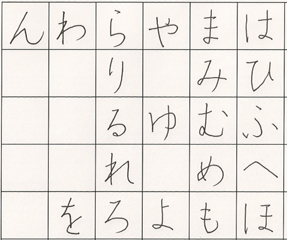 はひふへほ
まみむめも
やゆよ
らりるれろ
わを
ん